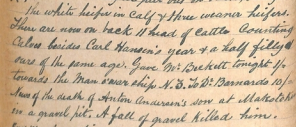 the white heifer in calf & three weaner heifers.
There are now on back 18 head of cattle Counting
Calves besides Carl Hansen's year & a half filly &
ours of the same age. Gave Mr Beckett tonight 1/-
towards the Man o' war ship N.Z. To Dr Barnardo 10/-
News of the death of Anton Andersen's son at
in a gravel pit. A fall of gravel killed him.